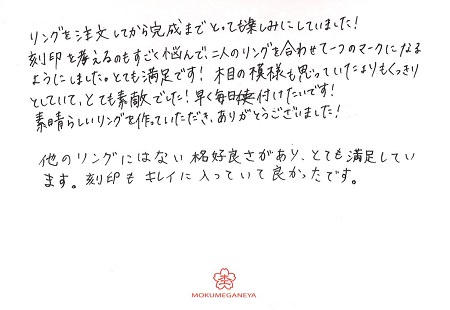 リングを注文してから完成までとっても楽しみにしていました!
刻印を考えるのもすごく悩んで、二人のリングを合わせて一つのマークになる
ようにしました。とても満足です! 木目の模様も思っていたよりもくっきり
としていて、とても素敵でした!早く毎日付けたいです!
素晴らしいリングを作っていただき、ありがとうございました!
他のリングにはない格好良さがあり、とても満足してい
ます。刻印もキレイに入っていて良かったです。
MOKUMEGANEYA